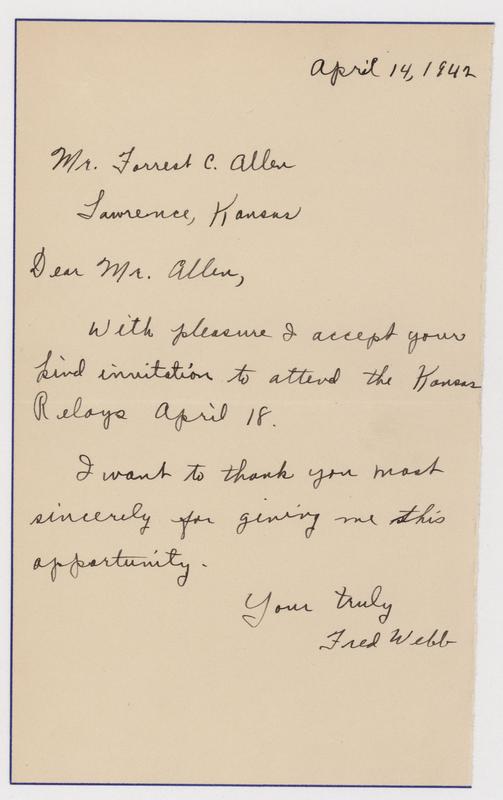 April 14, 1942
Mr. Forrest C. Allen
Lawrence, Kansas
Dear Mr. Allen,
With pleasure I accept your
kind invitation to attend the Kansas
Relays April 18.
I want to thank you most
sincerely for giving me this
opportunity.
Your truly
Fred Webb